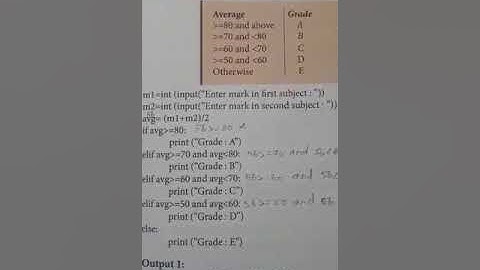 Average Grade
>=80 and above A
>=70 and <80 B
>=60 and <70 C
>=50 and <60 D
Otherwise E
m1=int (input("Enter mark in first subject : "))
m2=int (input("Enter mark in second subject : "))
avg= (m1+m2)/2
if avg>=80:
print ("Grade : A")
elif avg>=70 and avg<80:
print ("Grade : B")
elif avg>=60 and avg<70:
print ("Grade : C")
elif avg>=50 and avg<60:
print ("Grade : D")
else:
print ("Grade : E")
Output 1: